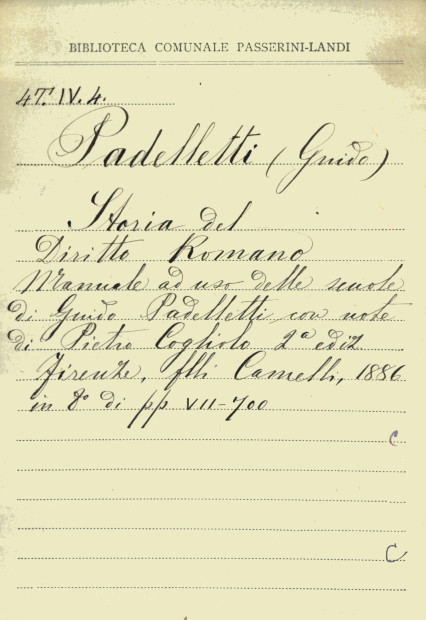 BIBLIOTECA COMUNALE PASSERINI-LANDI
4T. IV. 4.
Padelletti (Guido)
Storia del
Diritto Romano
Manuale ad uso delle scuole
di Guido Padelletti con note
di Pietro Cogliolo 2ª ediz
Firenze, flli Camelli, 1886
in 8º di pp VII-700
C
C